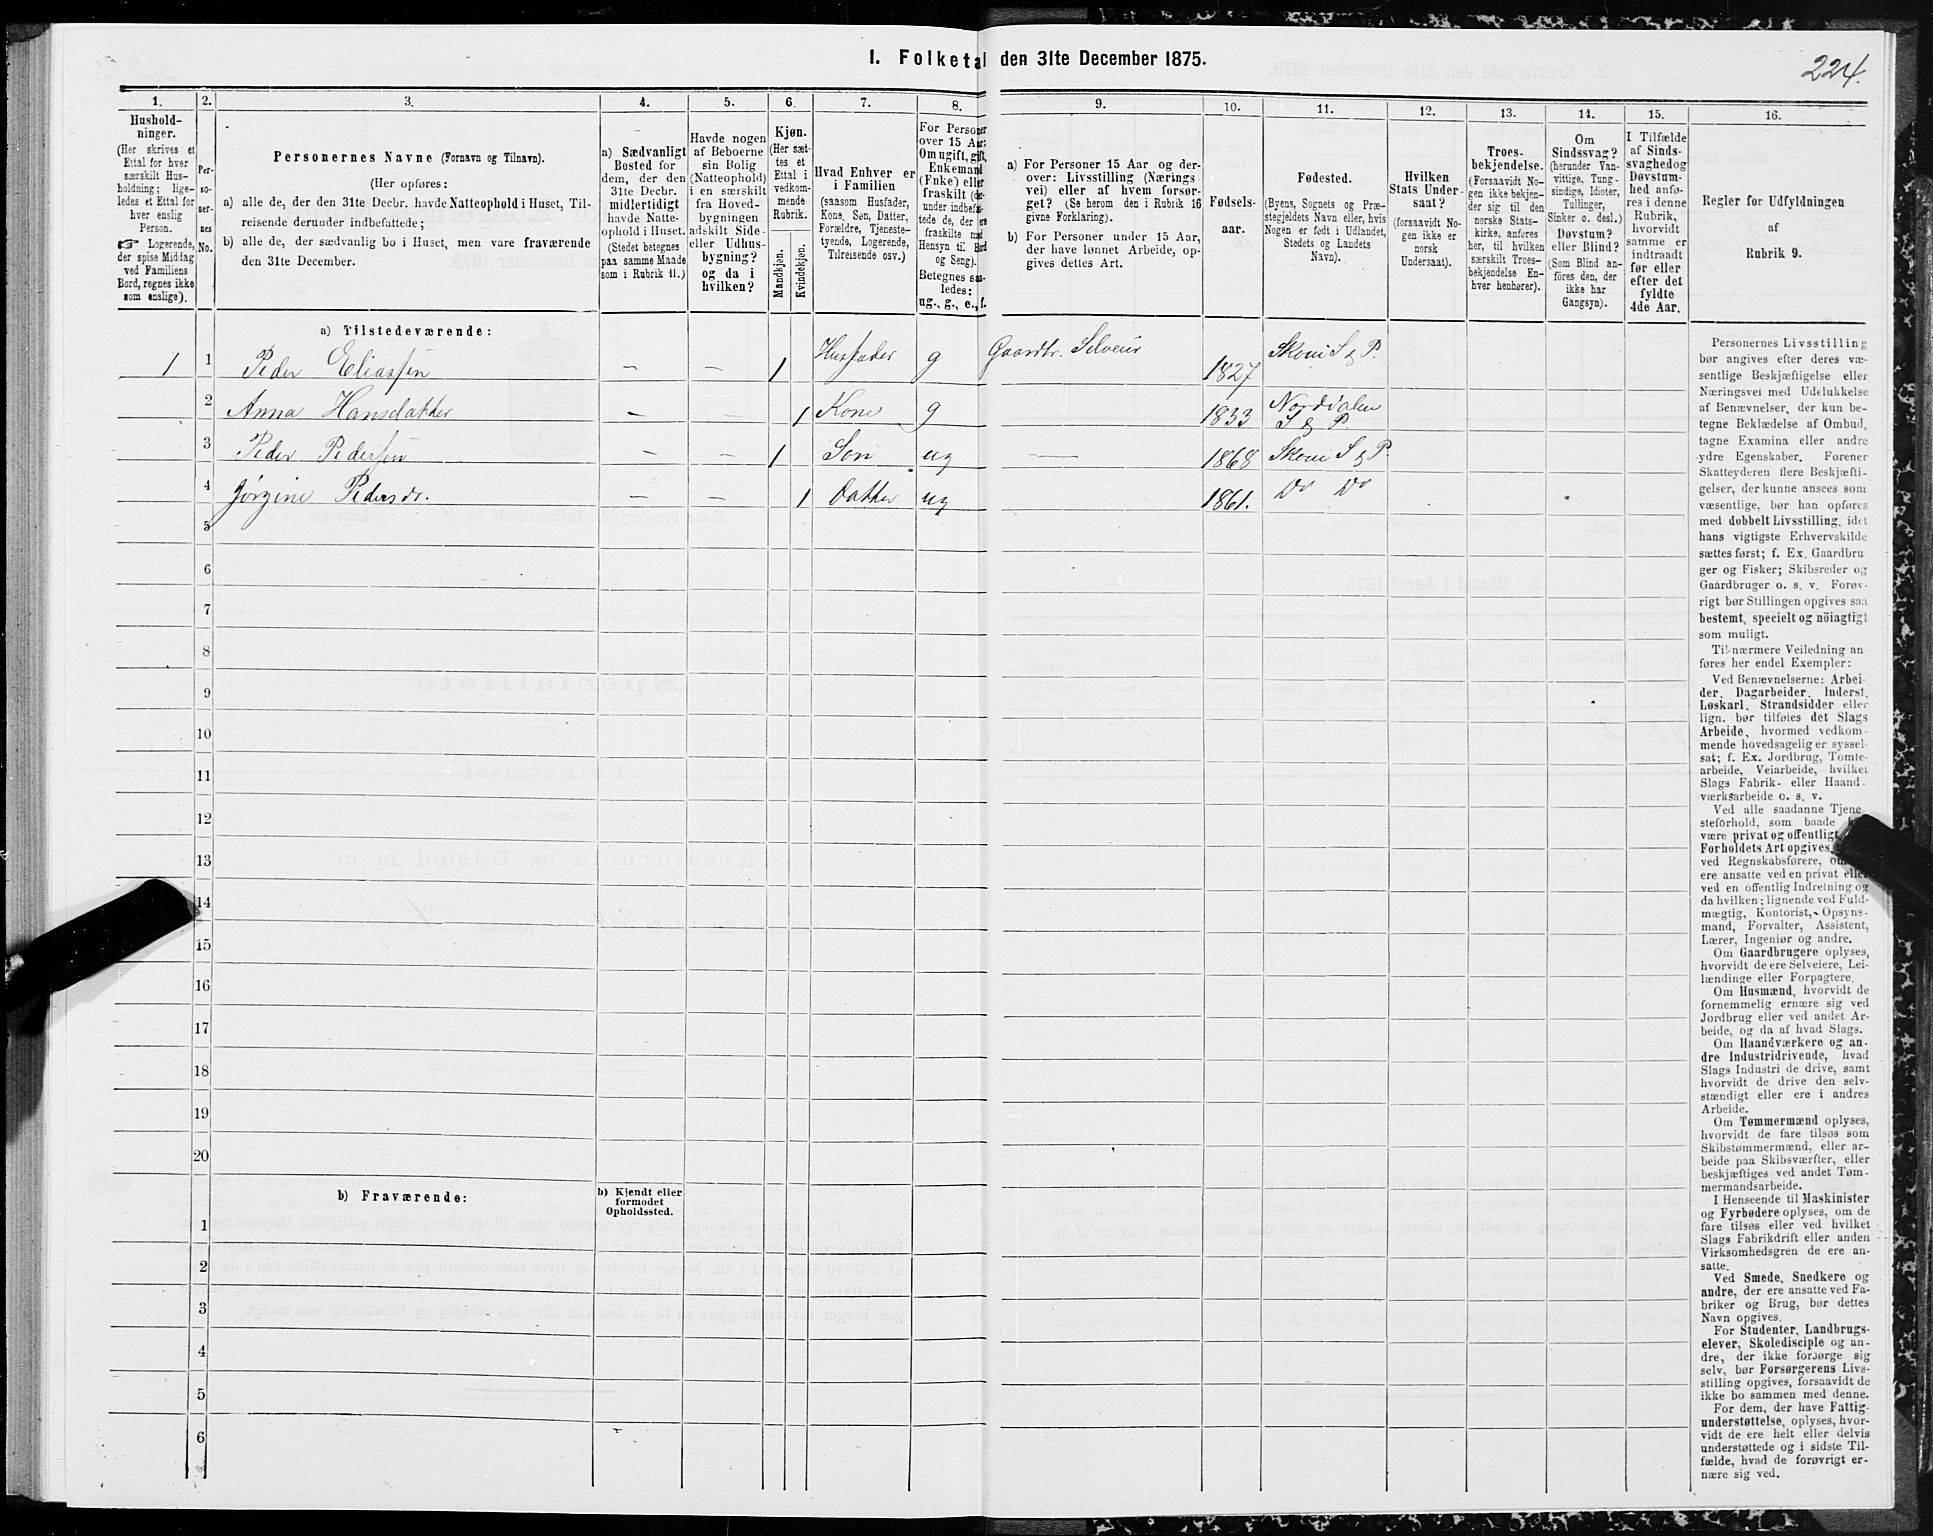 I. Folketal den 31te December 1875.
224.
1.
2.
3.
4.
5.
6.
7.
8.
9.
10.
11.
12.
13.
14.
15.
16.
Hushold-
ninger.
(Her skrives et
Ettal for hver
særskilt Hus-
holdning; lige-
ledes et Ettal for
hver enslig
Person.
☞ Logerende,
der spise Middag
ved Familiens
Bord, regnes ikke
som enslige).
Per-
so-
ner-
nes
No.
Personernes Navne (Fornavn og Tilnavn).
(Her opføres:
a) alle de, der den 31te Decbr. havde Natteophold i Huset, Til-
reisende derunder indbefattede;
b) alle de, der sædvanlig bo i Huset, men vare fraværende
den 31te December.
a) Sædvanligt
Bosted for
dem, der den
31te Decbr.
midlertidigt
havde Natte-
ophold i Huset.
(Stedet betegnes
paa samme Maade
som i Rubrik 11.)
Havde nogen
af Beboerne
sin Bolig
(Natteophold)
i en særskilt
fra Hoved-
bygningen
adskilt Side-
eller Udhus-
bygning?
og da i
hvilken?
Kjøn.
(Her sæt-
tes et
Ettal i
vedkom-
mende
Rubrik.
Mandkjøn.
Kvindekjøn.
Hvad Enhver er
i Familien
(saasom Husfader,
Kone, Søn, Datter,
Forældre, Tjeneste-
tyende, Logerende,
Tilreisende osv.)
For Personer
over 15 Aar:
Om ugift, gift,
Enkemand
(Enke) eller
fraskilt (der-
under indbefat-
tede de, der ere
fraskilte med
Hensyn til Bord
og Seng).
Betegnes saa-
ledes:
ug., g., e., f.
a) For Personer 15 Aar og der-
over: Livsstilling (Nærings
vei) eller af hvem forsør-
get? (Se herom den i Rubrik 16
givne Forklaring).
b) For Personer under 15 Aar,
der have lønnet Arbeide, op-
gives dettes Art.
Fødsels-
aar.
Fødested.
(Byens, Sognets og Præ-
stegjeldets Navn eller, hvis
Nogen er født i Udlandet,
Stedets og Landets
Navn).
Hvilken
Stats Under-
saat?
(forsaavidt No-
gen ikke er
norsk
Undersaat).
Troes-
bekjendelse.
(Forsaavidt No-
gen ikke bekjen-
der sig til den
norske Stats-
kirke, anføres
her, til hvilken
særskilt Troes-
bekjendelse En-
hver henhører).
Om
Sindssvag?
(herunder Van-
vittige, Tung-
sindige, Idioter,
Tullinger,
Sinker o. desl.)
Døvstum?
eller Blind?
(Som Blind an-
føres den, der
ikke har
Gangsyn).
I Tilfælde
af Sinds-
svaghed og
Døvstum-
hed anfø-
res i denne
Rubrik,
hvorvidt
samme er
indtraadt
før eller
efter det
fyldte
4de Aar.
Regler for Udfyldningen
af
Rubrik 9.
a) Tilstedeværende:
1 1 Peder Eliassen – – 1 Husfader g Gaardbr. Selveier 1827 Skoui S & P.
2 Anna Hansdatter – – 1 Kone g 1833 Norddalen S & P.
3 Peder Pedersen – – 1 Søn ug — 1868 Skoui S & P.
4 Jørgine Pedersdr. – – 1 Datter ug 1861. Do Do
5
6
7
8
9
10
11
12
13
14
15
16
17
18
19
20
b) Fraværende:
b) Kjendt eller
formodet
Opholdssted.
1
2
3
4
5
6
Personernes Livsstilling
bør angives efter deres væ-
sentlige Beskjæftigelse eller
Næringsvei med Udelukkelse
af Benævnelser, der kun be-
tegne Beklædelse af Ombud,
tagne Examina eller andre
ydre Egenskaber. Forener
Skatteyderen flere Beskjæfti-
gelser, der kunne ansees som
væsentlige, bør han opføres
med dobbelt Livsstilling, idet
hans vigtigste Erhvervskilde
sættes først; f. Ex. Gaardbru
ger og Fisker; Skibsreder og
Gaardbruger o. s. v. Forøv-
rigt bør Stillingen opgives saa
bestemt, specielt og nøiagtigt
som muligt.
Til nærmere Veiledning an-
føres her endel Exempler:
Ved Benævnelserne: Arbei-
der, Dagarbeider, Inderst,
Løskarl, Strandsidder eller
lign. bør tilføies det Slags
Arbeide, hvormed vedkom-
mende hovedsagelig er syssel-
sat; f. Ex. Jordbrug, Tomte-
arbeide, Veiarbeide, hvilket
Slags Fabrik- eller Haand-
værksarbeide o. s. v.
Ved alle saadanne Tjene-
steforhold, som baade
være privat og offentligt,
Forholdets Art opgives,
ved Regnskabsførere,
ere ansatte ved en privat eller
ved en offentlig Indretning og
da hvilken; lignende ved Fuld-
mægtig, Kontorist, Opsyns-
mand, Forvalter, Assistent,
Lærer, Ingeniør og andre.
Om Gaardbrugere oplyses,
hvorvidt de ere Selveiere, Lei-
lændinge eller Forpagtere.
Om Husmænd, hvorvidt de
fornemmelig ernære sig ved
Jordbrug eller ved andet Ar-
beide, og da af hvad Slags.
Om Haandværkere og an-
dre Industridrivende, hvad
Slags Industri de drive, samt
hvorvidt de drive den selv-
stændigt eller ere i andres
Arbeide.
Om Tømmermænd oplyses,
hvorvidt de fare tilsøs som
Skibstømmermænd, eller ar-
beide paa Skibsværfter, eller
beskjæftiges ved andet Tøm-
mermandsarbeide.
I Henseende til Maskinister
og Fyrbødere oplyses, om de
fare tilsøs eller ved hvilket
Slags Fabrikdrift eller anden
Virksomhedsgren de ere an-
satte.
Ved Smede, Snedkere og
andre, der ere ansatte ved Fa-
briker og Brug, bør dettes
Navn opgives.
For Studenter, Landbrugs-
elever, Skoledisciple og an-
dre, der ikke forsørge sig
selv, bør Forsørgerens Livs-
stilling opgives, forsaavidt de
ikke bo sammen med denne.
For dem, der have Fattig-
understøttelse, oplyses, hvor-
vidt de ere helt eller delvis
understøttede og i sidste Til-
fælde, hvad de forøvrigt er-
nære sig ved.